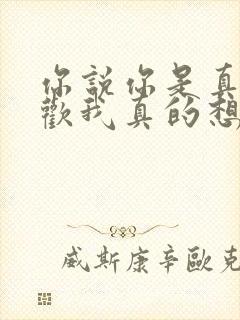 你說你是真
歡我真的想
威斯康辛歐克